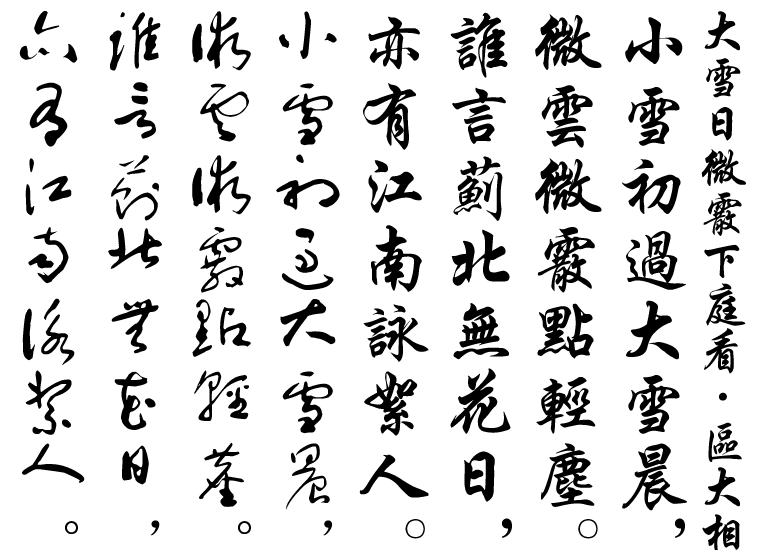 大雪日微霰下庭看·區大相
小雪初過大雪晨，
微雲微霰點輕塵。
誰言薊北無花日，
亦有江南詠絮人。
小雪初過大雪晨，
微雲微霰點輕塵。
誰言薊北無花日，
亦有江南詠絮人。